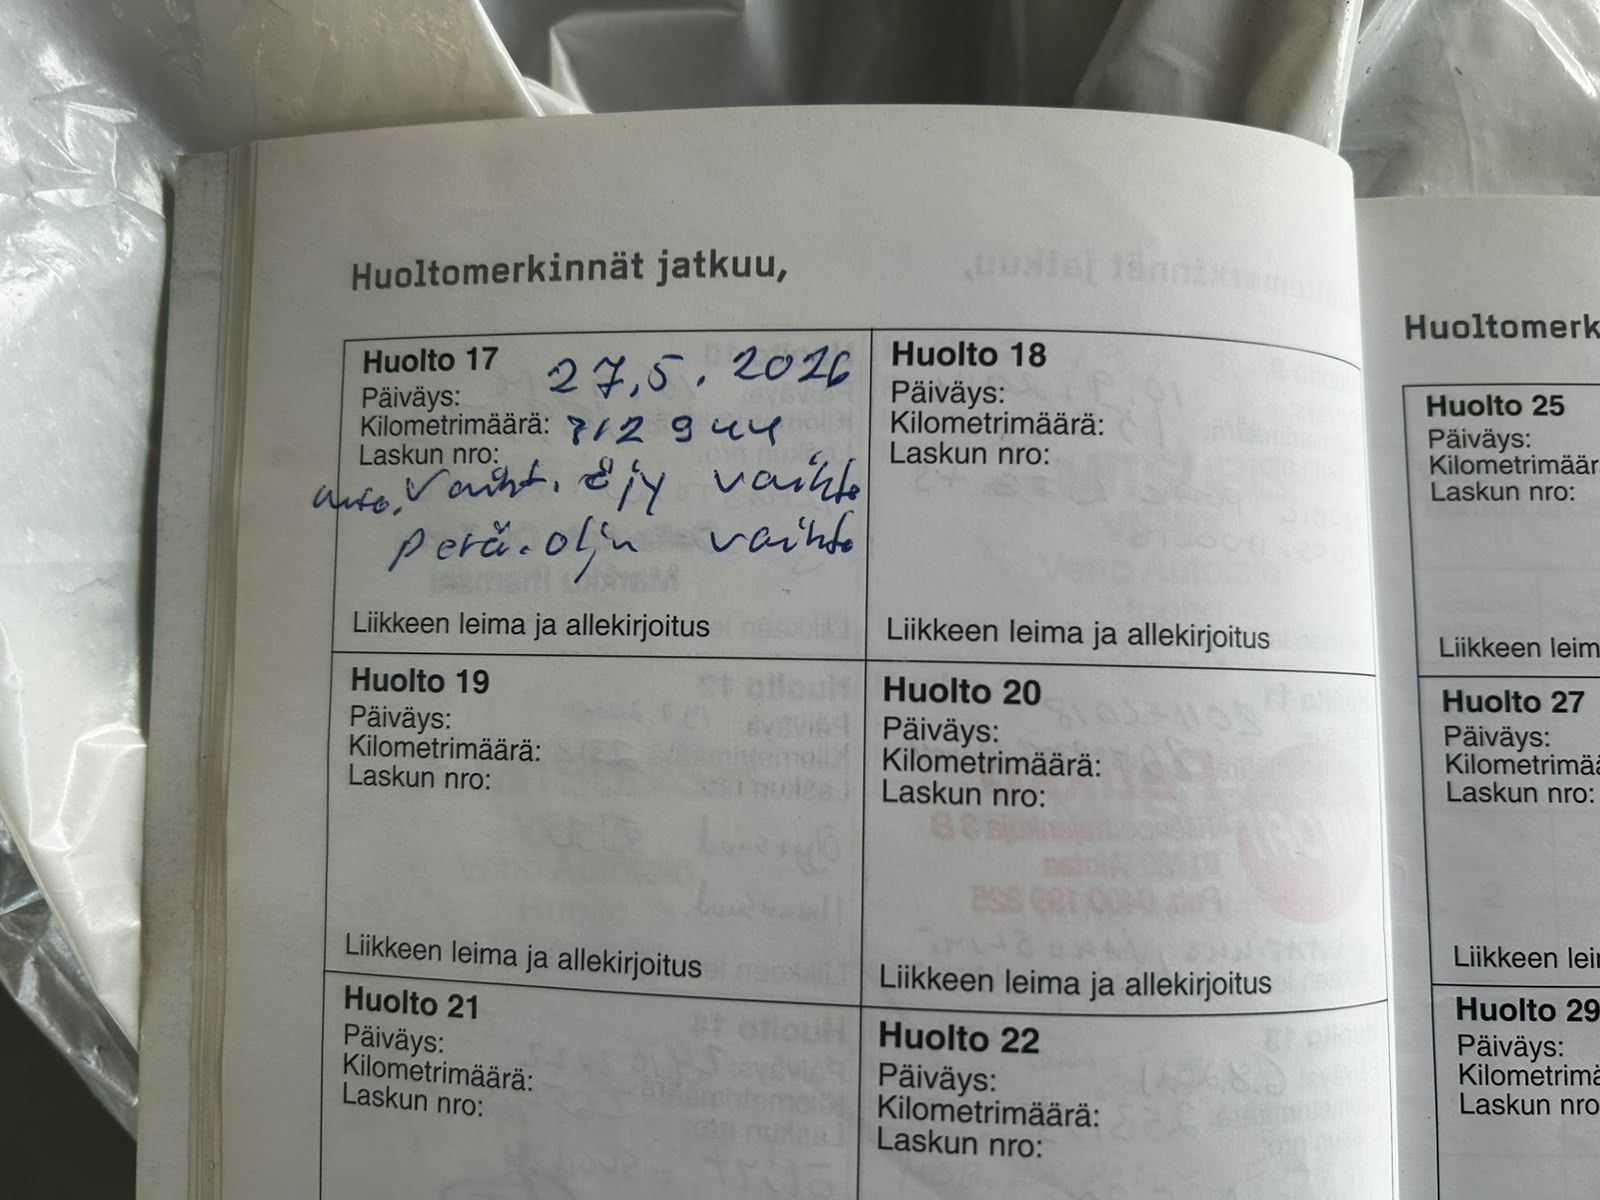 Huoltomerkinnät jatkuu,
Huolto 17
27.5.2026
Päiväys:
Kilometrimäärä: 312944
Laskun nro:
auto. Vaiht. öljy vaihto
perä. öljn vaihto
Liikkeen leima ja allekirjoitus
Huolto 18
Päiväys:
Kilometrimäärä:
Laskun nro:
Liikkeen leima ja allekirjoitus
Huolto 19
Päiväys:
Kilometrimäärä:
Laskun nro:
Liikkeen leima ja allekirjoitus
Huolto 20
Päiväys:
Kilometrimäärä:
Laskun nro:
Liikkeen leima ja allekirjoitus
Huolto 21
Päiväys:
Kilometrimäärä:
Laskun nro:
Huolto 22
Päiväys:
Kilometrimäärä:
Laskun nro:
Huoltomerk
Huolto 25
Päiväys:
Kilometrimäär
Laskun nro:
Liikkeen leim
Huolto 27
Päiväys:
Kilometrimää
Laskun nro:
Liikkeen lei
Huolto 29
Päiväys:
Kilometrimä
Laskun nro